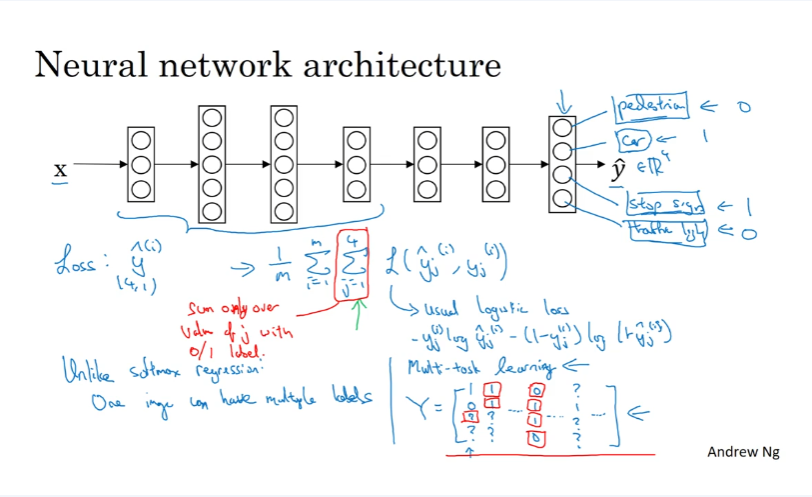 Neural network architecture
pedestrian ← 0
car ← 1
x
ŷ ∈ ℝ⁴
stop sign ← 1
traffic light ← 0
Loss: ŷ^(i) → 1/m Σ_{i=1}^{m} Σ_{j=1}^{4} L(ŷ_j^(i), y_j^(i))
(4,1)
sum only over
value of j with
0/1 label.
usual logistic loss
-y_j^(i) log ŷ_j^(i) - (1-y_j^(i)) log (1-ŷ_j^(i))
Unlike softmax regression:
One image can have multiple labels
Multi-task learning ←
Y = [
1 1 0 ?
0 1 ... 1 ... 1 ...
? ? 1 ?
? ? 0 ?
] ←
Andrew Ng